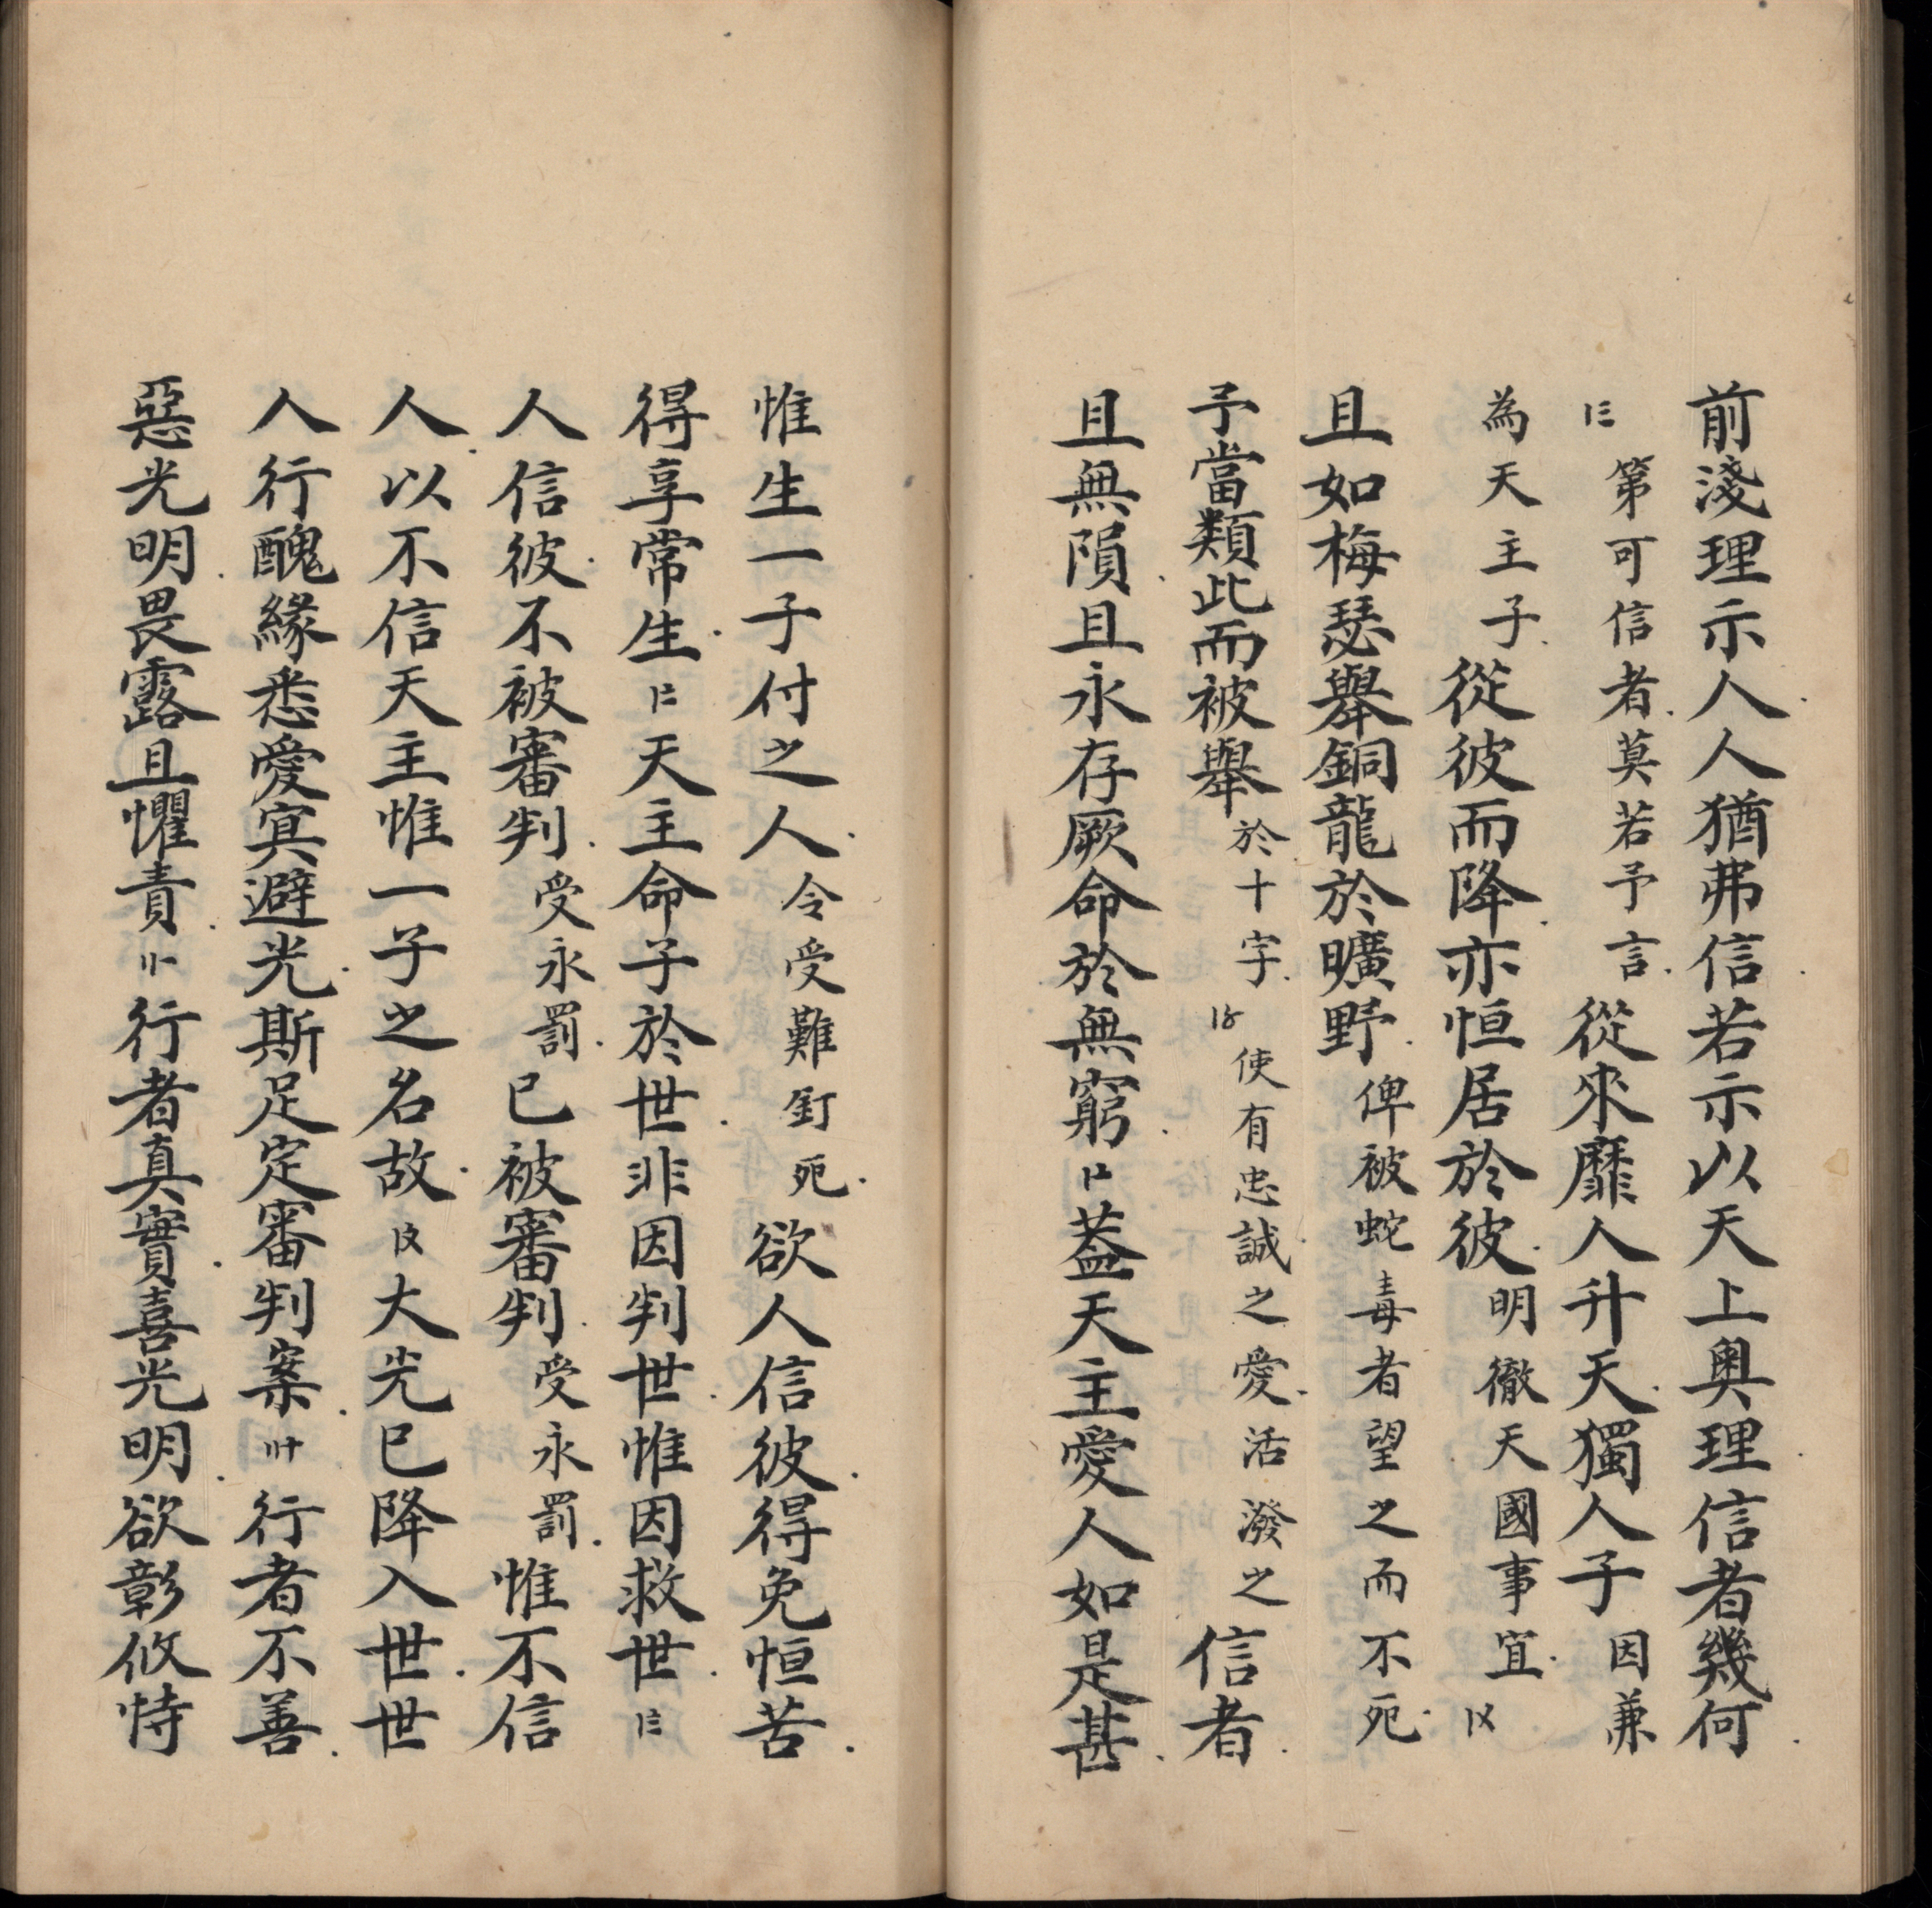 前淺理示人人猶弗信若示以天上奧理信者幾何
〡三第可信者莫若予言從來靡人升天獨人子因兼
為天主子從彼而降亦恒居於彼明徹天國事宜〡〤
且如梅瑟舉銅龍於曠野俾被蛇毒者望之而不死
予當類此而被舉於十字〡〥使有忠誠之愛活潑之信者
且無隕且永存厥命於無窮〡〦葢天主愛人如是甚
惟生一子付之人令受難釘死欲人信彼得免恒苦
得享常生〡〧天主命子於世非因判世惟因救世〡〨
人信彼不被審判受永罰已被審判受永罰惟不信
人以不信天主惟一子之名故〡〩大光已降入世世
人行醜緣悉愛冥避光斯足定審判案〢十行者不善
惡光明畏露且懼責〢〡行者真實喜光明欲彰攸恃